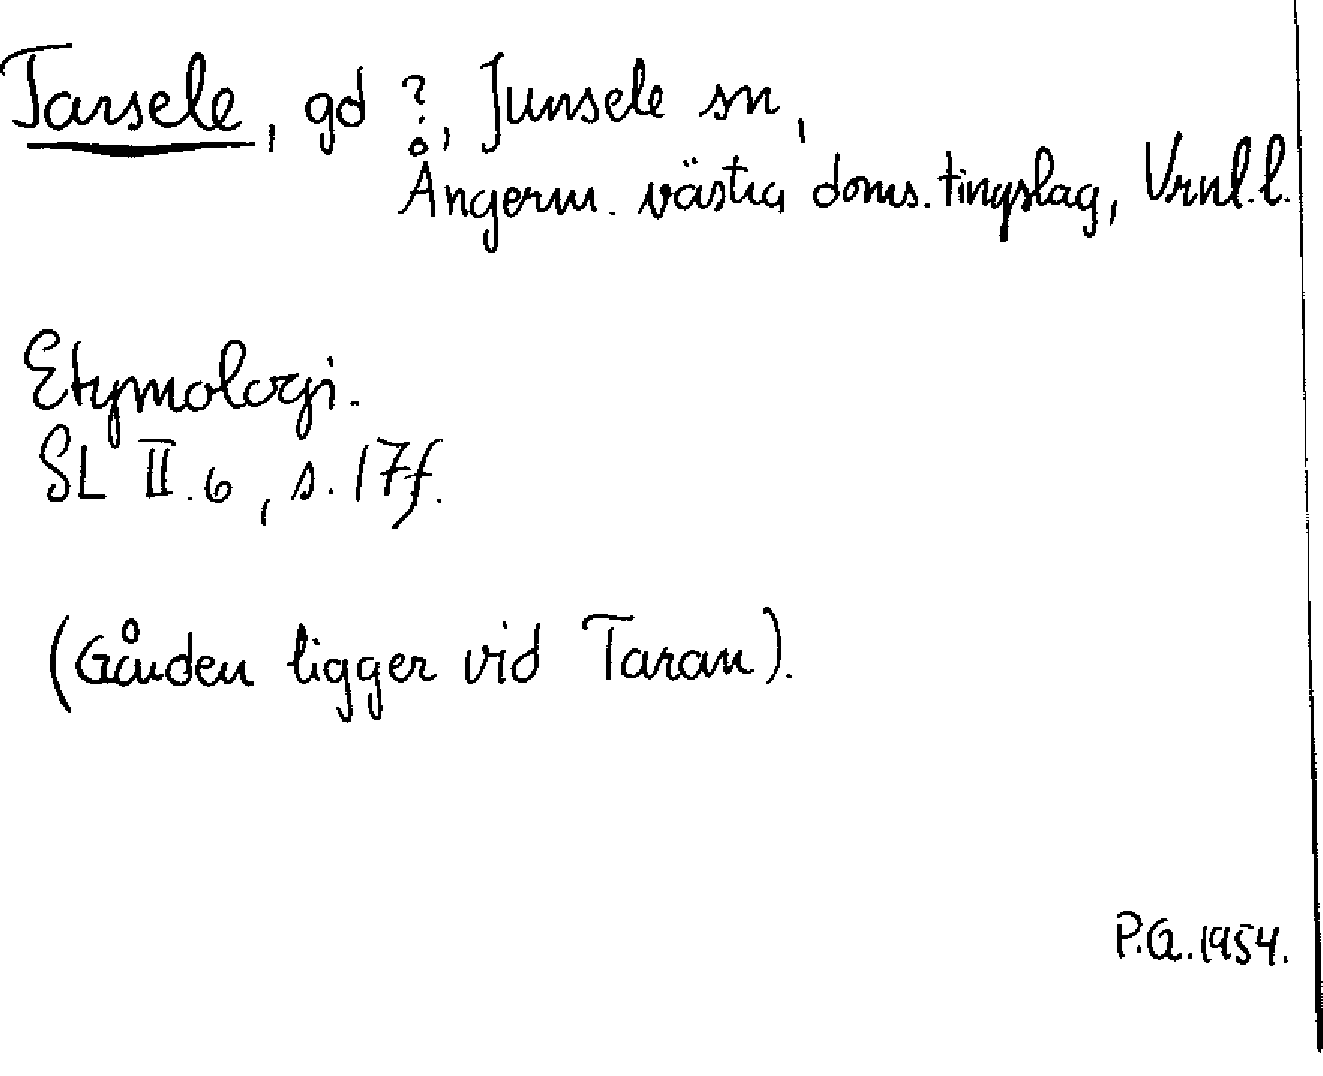 Tarsele, gd ?, Junsele sn,
Ångerm. västra doms. tingslag, Vrnl. l.
Etymologi.
SL II.6, s. 17f.
(Gården ligger vid Taran).
P.G. 1954.